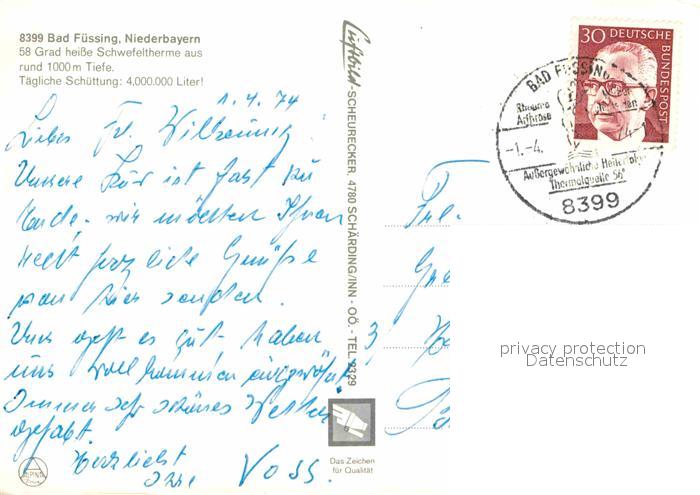 8399 Bad Füssing, Niederbayern
58 Grad heiße Schwefeltherme aus
rund 1000 m Tiefe.
Tägliche Schüttung: 4,000.000 Liter!
1.4.74
Liebes Frl.
Unsere Kur ist fast zu
Ende. wir möchten Ihnen
recht herzliche Grüße
von hier senden.
Uns geht es gut. haben
uns vollkommen eingewöhnt.
Immer sehr schönes Wetter
gehabt.
Herzlichst
Ihre Voss.
Luftbild-SCHEURECKER, 4780 SCHÄRDING/INN - OÖ. - TEL.
Das Zeichen
für Qualität
ALPINA
30 DEUTSCHE BUNDESPOST
BAD FÜSSING
Rheuma
Arthrose
-1.-4.
Außergewöhnliche Heilerfolge
Thermalquelle 56°
8399
Frl.
3
privacy protection
Datenschutz